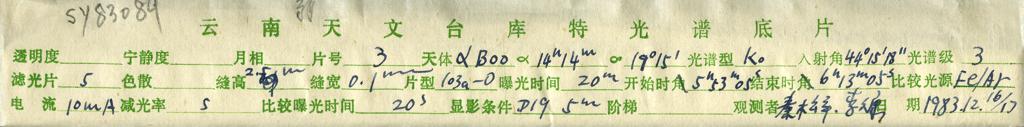 SY83084
云南天文台库特光谱底片
透明度 宁静度 月相 片号 3 天体 α Boo α 14ʰ14ᵐ δ 19°15' 光谱型 K0 入射角 44°15'18" 光谱级 3
滤光片 5 色散 缝高 缝宽 0.1ᵐᵐ 片型 103a-O 曝光时间 20ᵐ 开始时角 5ʰ53ᵐ05ˢ 结束时角 6ʰ13ᵐ05ˢ 比较光源 Fe/Ar
电流 10mA 减光率 5 比较曝光时间 20ˢ 显影条件 D19 5ᵐ 阶梯 观测者 日期 1983.12.16/17